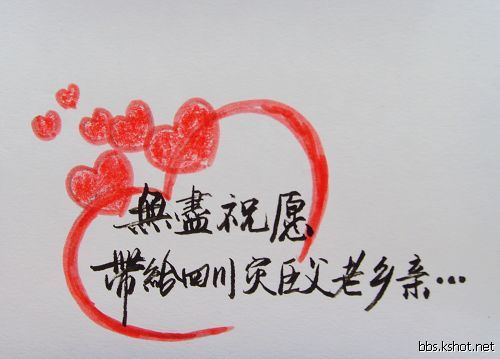 無盡祝愿
帶給四川灾区父老乡亲…
bbs.kshot.net